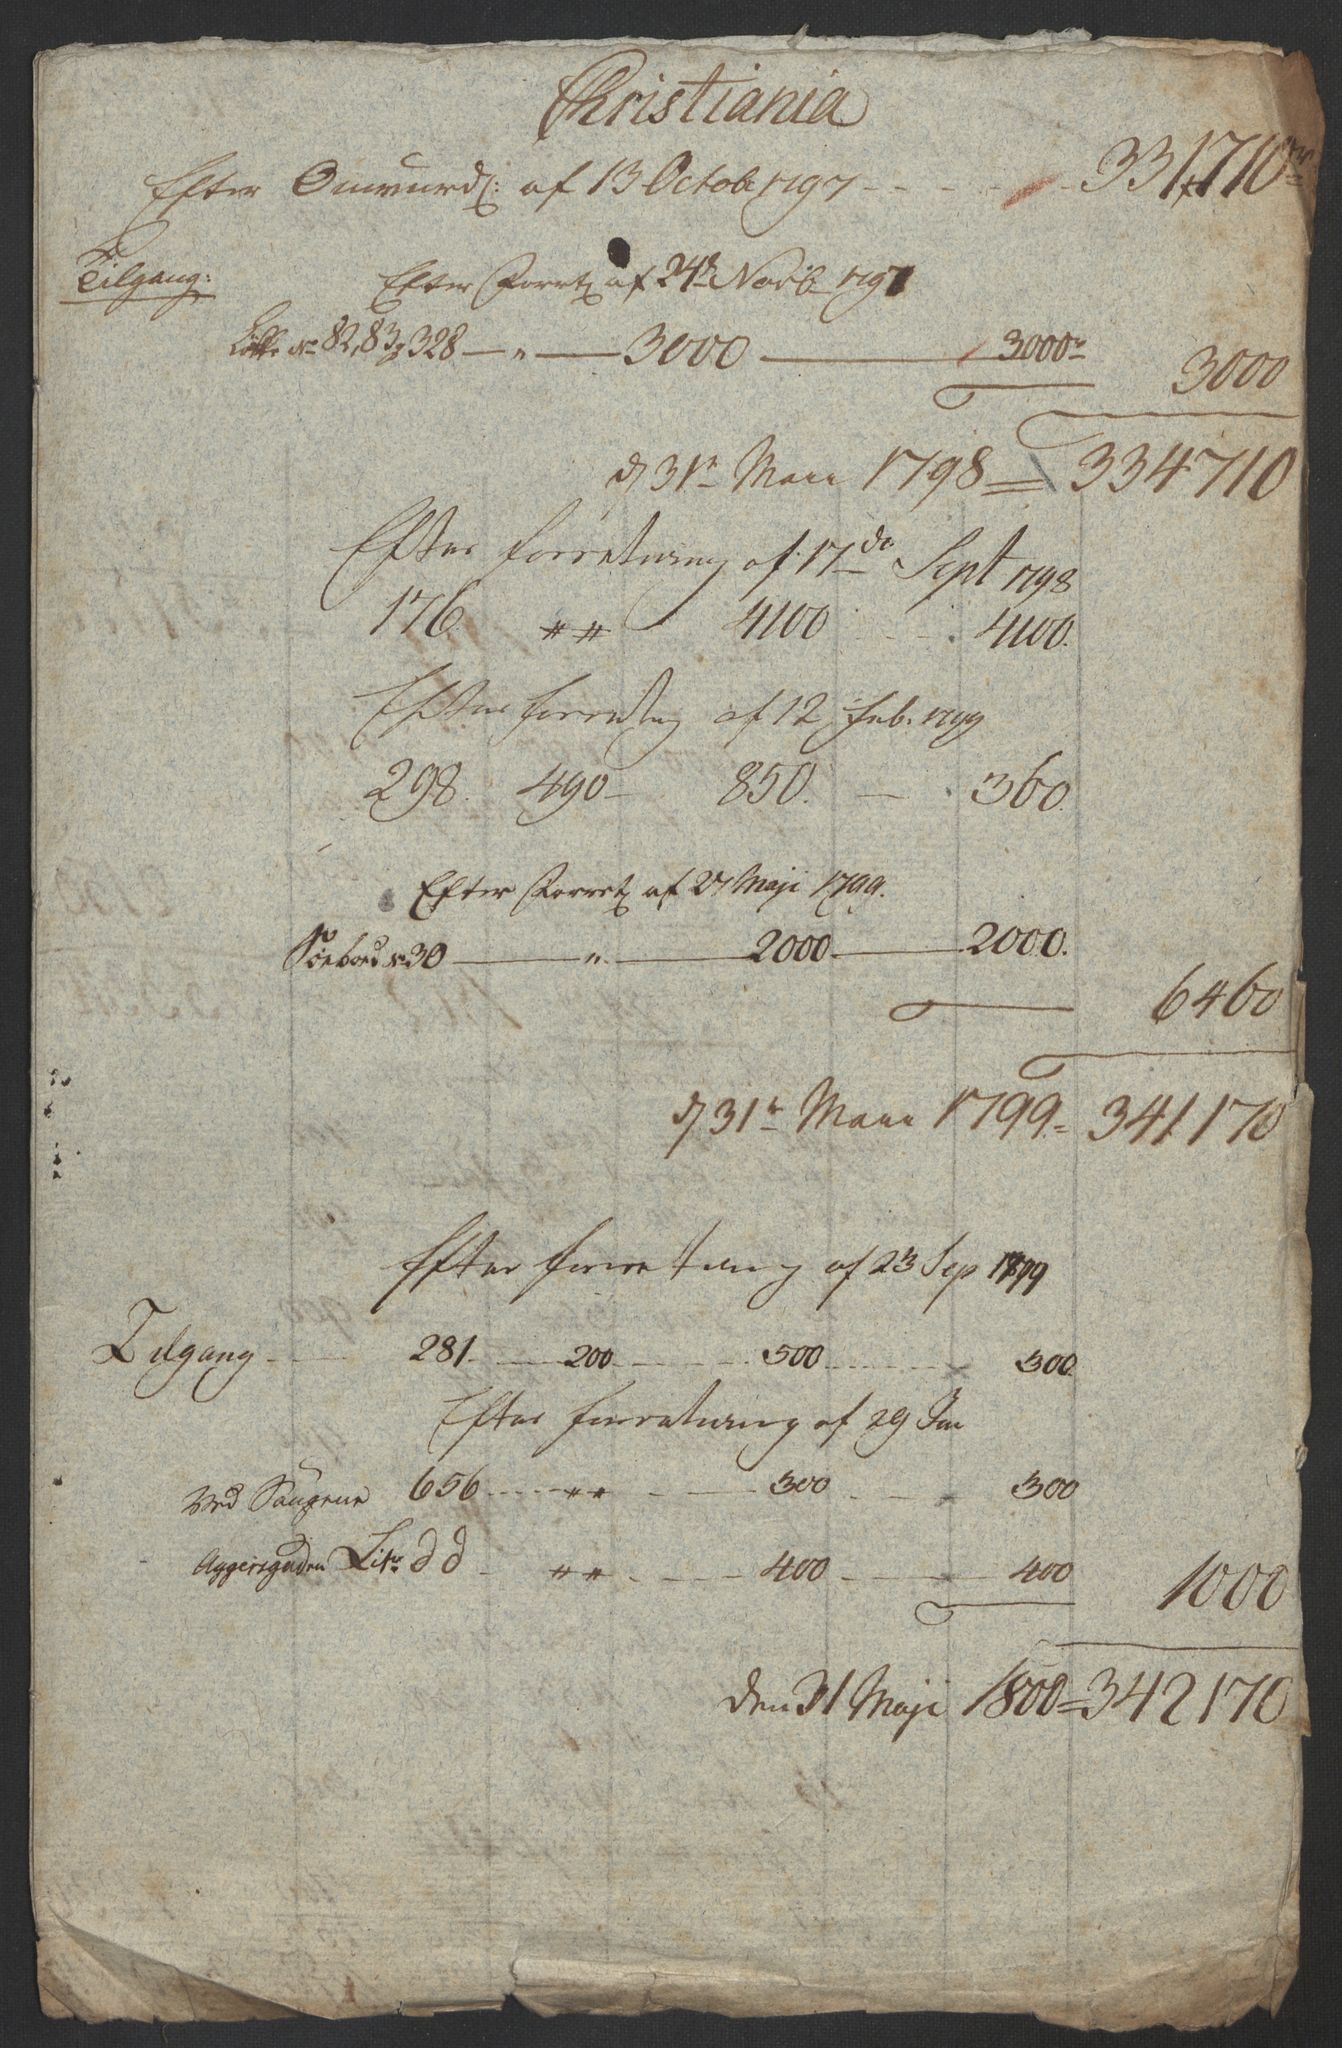 Christiania
Efter Omvurd: af 13 Octob 1797 - - - - 331,710
Tilgang: Efter Forretn af 24 Novb 1797
No 82, 83 & 328 — " — 3000 — 3000 3000
d 31 Maii 1798 = 334710
Efter forretning af 17de Sept 1798
176 " " 4100 - - 4100.
Efter forretng af 12 feb. 1799
298. 490 - 850. - 360
Efter Forretn af 27 Maji 1799.
Söeboed No 30 — " — 2000 — 2000.
6460
d 31 Maii 1799 = 341170
Efter forretning af 23 Sep 1799
Tilgang - 281 - 200 - 500 - 300
Efter forretning af 29 Jan
Ved Saugene 656 - " " - 300 - 300
Aggersgaden Litr. dd - " " - 400 - 400 1000
den 31 Maji 1800 = 342170